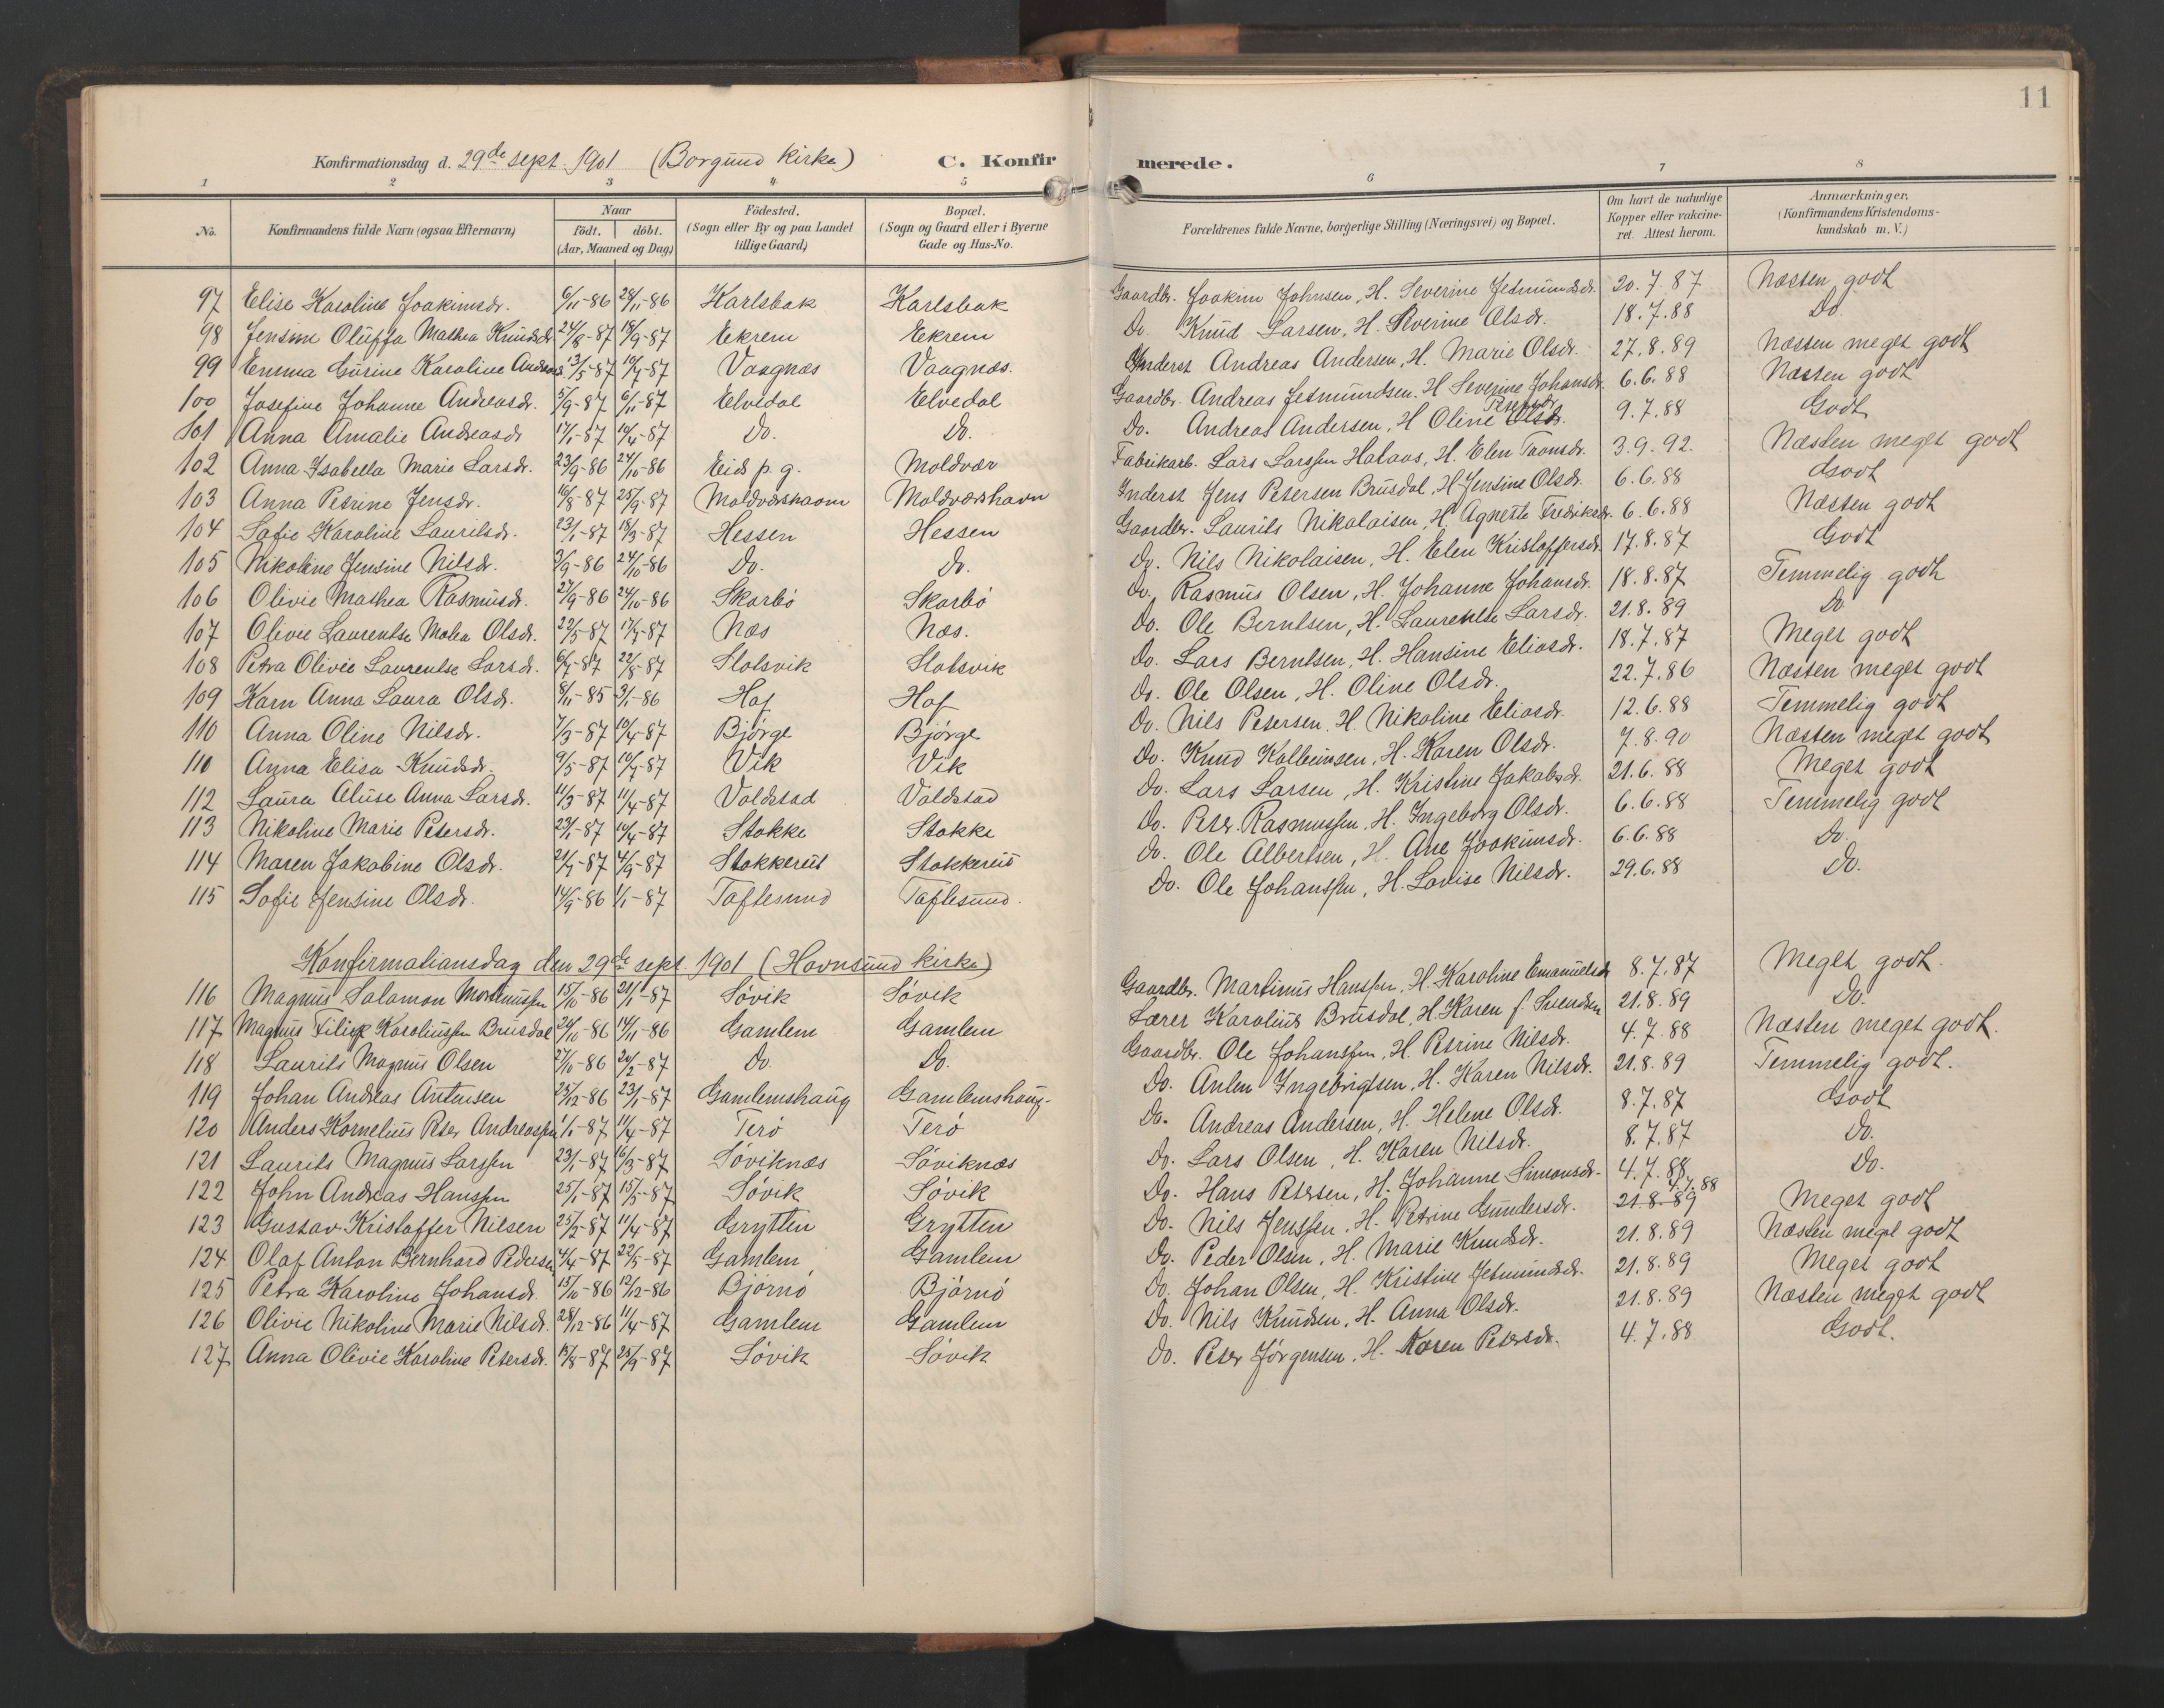 11
Konfirmationsdag d. 29de sept. 1901 (Borgund kirke) C. Konfirmerede.
1 2 3 4 5 6 7 8
No. Konfirmandens fulde Navn (ogsaa Efternavn) Naar födt. döbt. (Aar, Maaned og Dag) Födested. (Sogn eller By og paa Landet tillige Gaard) Bopæl. (Sogn og Gaard eller i Byerne Gade og Hus-No. Forældrenes fulde Navne, borgerlige Stilling (Næringsvei) og Bopæl. Om havt de naturlige Kopper eller vakcineret. Attest herom. Anmærkninger. (Konfirmandens Kristendomskundskab m. V.)
97 Elise Karoline Joakimsdr. 6/11-86 28/11-86 Karlsbak Karlsbak Gaardbr. Joakim Johnsen, H. Severine Jetmundsdr. 20.7.87 Næsten godt
98 Jensine Oluffa Mathea Knudsdr. 24/8-87 18/9-87 Ekrem Ekrem Do. Knud Larsen, H. Severine Olsdr. 18.7.88 Do.
99 Emma Gurine Karoline Andersd 13/5-87 10/7-87 Vaagnæs Vaagnæs. Inderst Andreas Andersen, H. Marie Olsdr. 27.8.89 Næsten meget godt
100 Josefine Johanne Andreasdr. 5/9-87 6/11-87 Elvedal Elvedal Gaardbr. Andreas Jetmundsen. H Severine Johansdr. 6.6.88 Næsten godt
101 Anna Amalie Andreasdr 17/1-87 10/4-87 Do. Do. Do. Andreas Andersen, H Oline Olsdr. Petersdr. 9.7.88 Godt
102 Anna Isabella Marie Larsdr. 23/9-86 24/10-86 Eids p.g. Moldvær Fabrikarb. Lars Larssen Hataas, H. Elen Toonsdr. 3.9.92. Næsten meget godt
103 Anna Petrine Jensdr. 16/8-87 25/9-87 Moldværshavn Moldværshavn Inderst Jens Petersen Brusdal, H Jensine Olsdr. 6.6.88 Godt
104 Sofie Karoline Lauritsdr. 23/1-87 18/3-87 Hessen Hessen Gaardbr. Laurits Nikolaisen, H. Agnette Fredriksdr. 6.6.88 Næsten godt
105 Nikoline Jensine Nilsdr. 3/9-86 24/10-86 Do. Do. Do. Nils Nikolaisen, H. Elen Kristoffersdr. 17.8.87 Godt
106 Olivie Mathea Rasmusdr. 27/9-86 24/10-86 Skarbö Skarbö Do. Rasmus Olsen, H. Johanne Johansdr. 18.8.87 Temmelig godt
107 Olivie Laurentse Molea Olsdr. 22/5-87 17/7-87 Næs Næs. Do. Ole Berntsen, H. Laurentse Larsdr. 21.8.89 Do
108 Petra Olivie Laurentse Larsdr. 6/7-87 22/8-87 Slotsvik Slotsvik Do. Lars Berntsen, H. Hansine Eliasdr. 18.7.87 Meget godt
109 Karn Anna Laura Olsdr. 8/11-85 3/1-86 Hof Hof Do. Ole Olsen, H. Oline Olsdr. 22.7.86 Næsten meget godt
110 Anna Oline Nilsdr. 7/3-87 10/4-87 Bjørge Bjørge Do. Nils Petersen. H. Nikoline Eliasdr. 12.6.88 Temmelig godt
110 Anna Elisa Knudsdr. 9/5-87 10/7-87 Vik Vik Do. Knud Kolbeinsen, H. Karen Olsdr. 7.8.90 Næsten meget godt
112 Laura Aluse Anna Larsdr. 11/3-87 11/4-87 Valdstad Valdstad Do. Lars Larsen, H. Kristine Jakobsdr. 21.6.88 Meget godt
113 Nikoline Marie Petersdr. 23/1-87 10/4-87 Stokke Stokke Do. Peter Rasmussen, H. Ingeborg Olsdr. 6.6.88 Temmelig godt
114 Maren Jakobine Olsdr. 21/7-87 4/9-87 Stokkereit Stokkereit Do. Ole Albertsen, H. Ane Joakimsdr. 6.6.88 Do.
115 Sofie Jensine Olsdr. 14/9-86 1/1-87 Taftesund Taftesund. Do. Ole Johanssen, H. Lovise Nilsdr. 29.6.88 Do.
Konfirmationsdag den 29de sept. 1901 (Havnsund kirke)
116 Magnus Salamon Martinussen 15/10-86 21/1-87 Søvik Søvik Gaardbr. Martinus Hanssen, H. Karoline Emanuelsdr 8.7.87 Meget godt.
117 Magnus Filip Karolinssen Brusdal 20/10-86 14/11-86 Gamlem Gamlem Lærer Karolius Brusdal, H. Karen f. Svendsen 21.8.89 Do.
118 Laurits Magnus Olsen 27/10-86 20/2-87 Do. Do. Gaardbr. Ole Johanssen, H. Petrine Nilsdr. 4.7.88 Næsten meget godt.
119 Johan Andreas Antensen 25/12-86 23/1-87 Gamlemshaug Gamlemshaug. Do. Anten Ingebrigtsen, H. Karen Nilsdr. 21.8.89 Temmelig godt.
120 Anders Kornelius Peter Andreassen 1/1-87 11/4-87 Terø Terø Do. Andreas Andersen, H. Helene Olsdr. 8.7.87 Godt
121 Laurits Magnus Larssen 23/1-87 16/3-87 Søviknæs Søviknæs Do. Lars Olsen, H. Karen Nilsdr. 8.7.87 Do.
122 John Andreas Hanssen 25/1-87 15/5-87 Søvik Søvik Do. Hans Petersen, H. Johanne Simonsdr. 4.7.88 Do.
123 Gustav Kristoffer Nilsen 25/2-87 11/4-87 Grytten Grytten Do. Nils Jenssen, H. Petrine Gundersdr. 21.8.89 4.7.88 Meget godt
124 Olaf Anton Bernhard Pedersen 4/4-87 22/5-87 Gamlem Gamlem Do. Peder Olsen, H. Marie Knudsdr. 21.8.89 Næsten meget godt
125 Petra Karoline Johansdr. 15/10-86 12/12-86 Bjørnø Bjørnø Do. Johan Olsen, H. Kristine Jetmundsdr. 21.8.89 Meget godt
126 Olivie Nikoline Marie Nilsdr. 28/12-86 11/4-87 Gamlem Gamlem Do. Nils Knudsen, H. Anna Olsdr. 21.8.89 Næsten meget godt
127 Anna Olivie Karoline Petersdr. 15/8-87 25/9-87 Søvik Søvik Do. Peter Jørgensen, H. Karen Petersdr. 4.7.88 Godt.